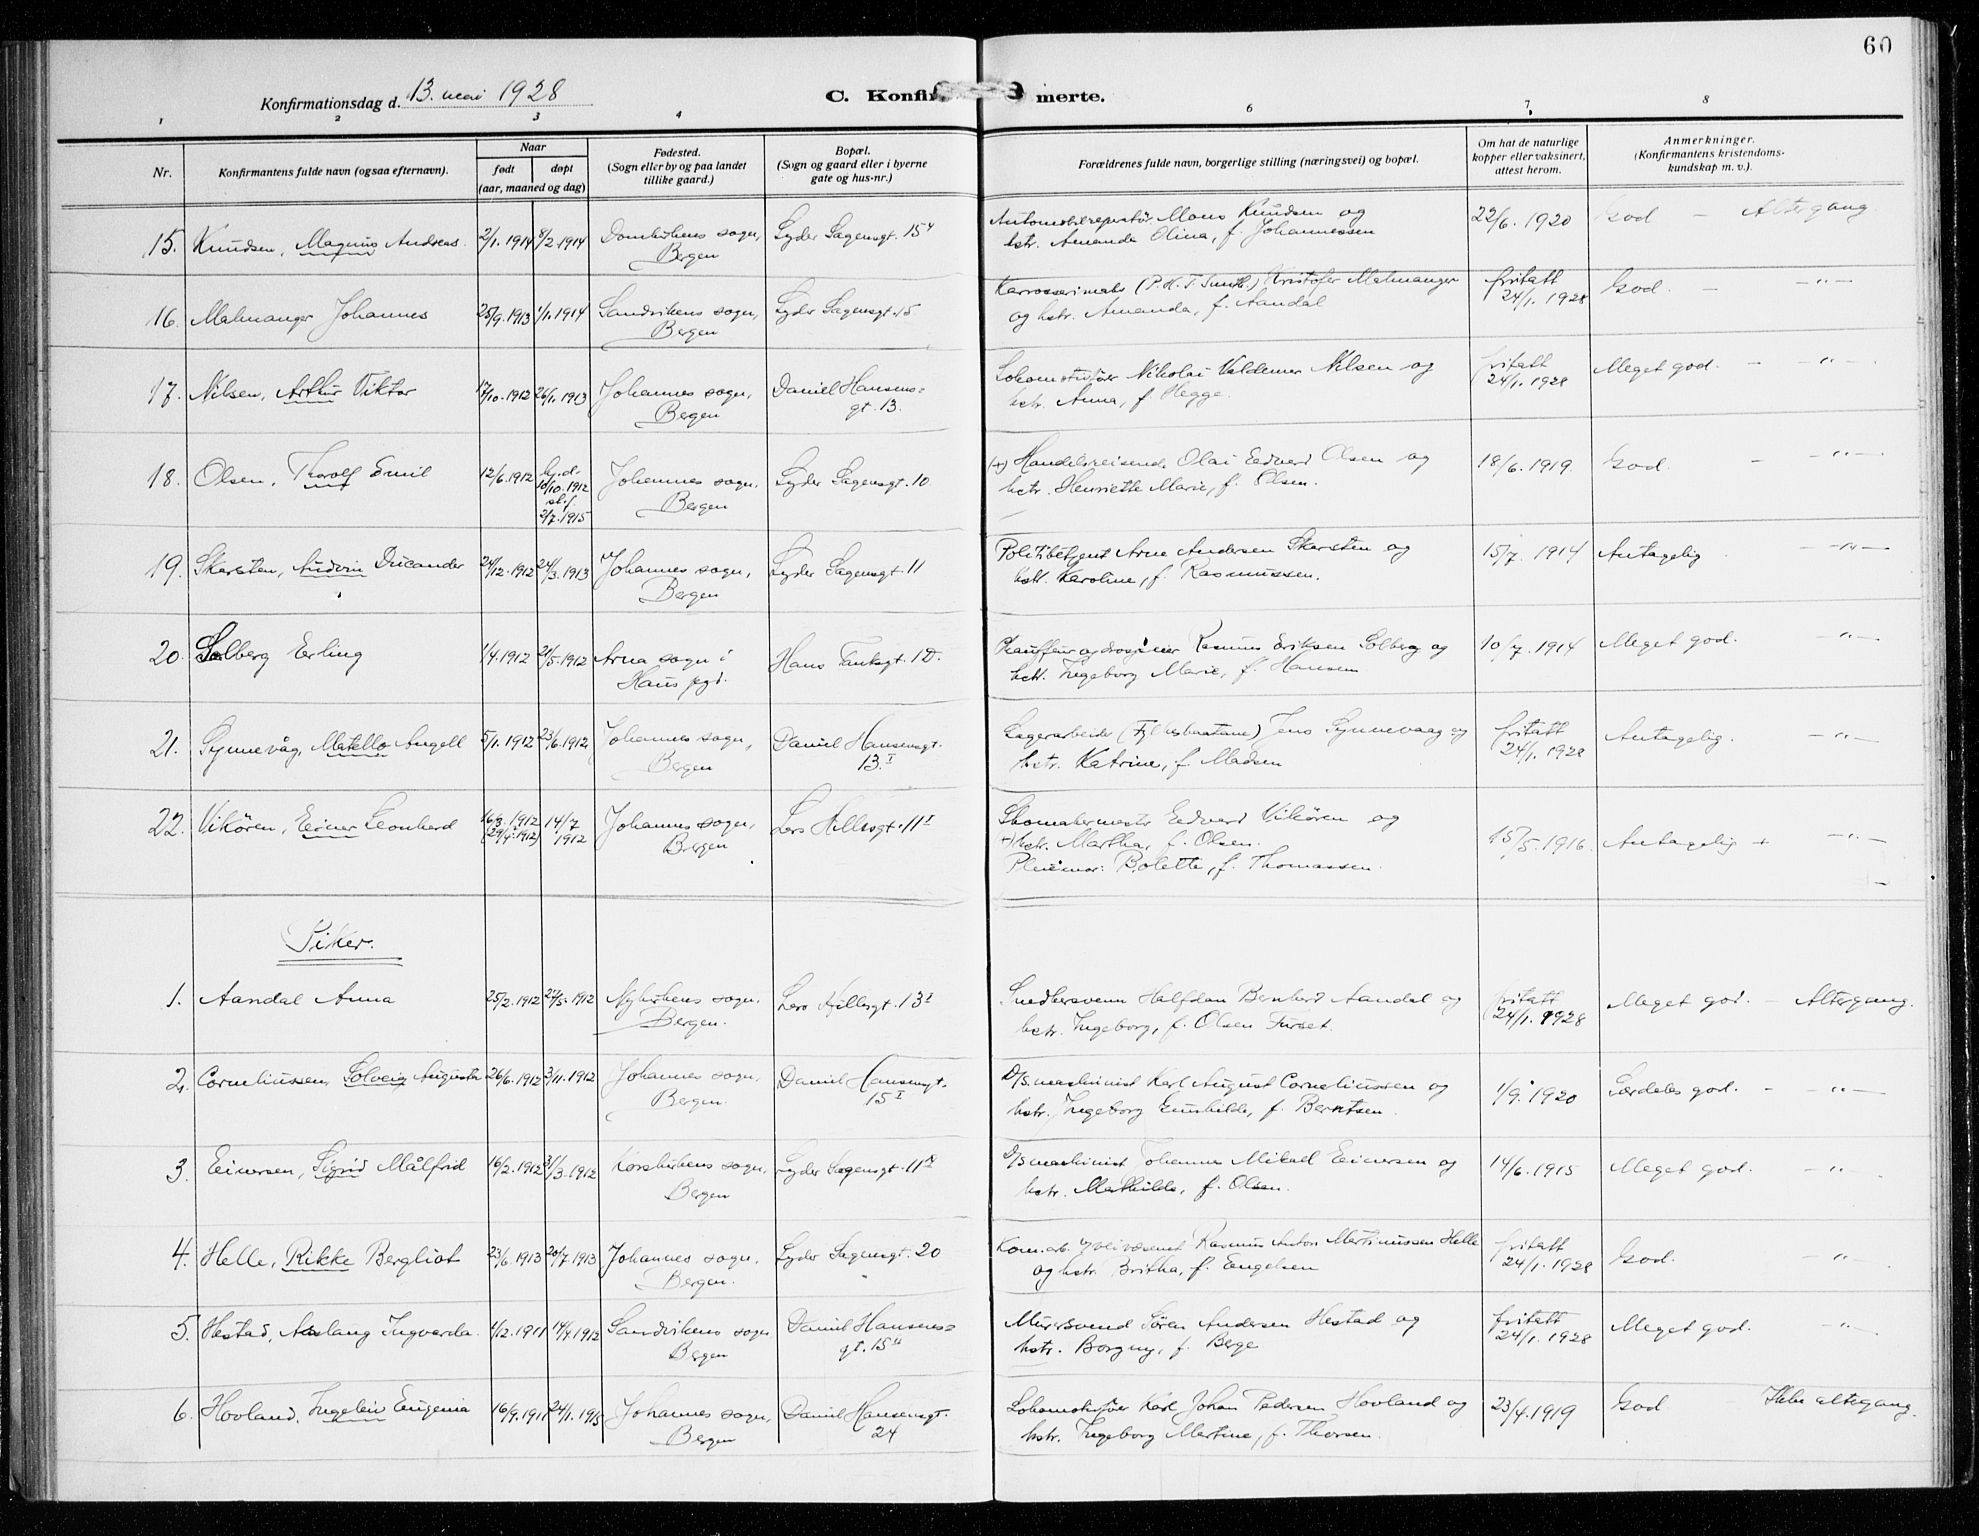 60
Konfirmationsdag d. 13. mai 1928
C. Konfir merte.
1 2 3 4 6 7 8
Nr.
Konfirmantens fulde navn (ogsaa efternavn).
Naar
født døpt
(aar, maaned og dag)
Fødested.
(Sogn eller by og paa landet
tillike gaard.)
Bopæl.
(Sogn og gaard eller i byerne
gate og hus-nr.)
Forældrenes fulde navn, borgerlige stilling (næringsvei) og bopæl.
Om hat de naturlige
kopper eller vaksinert,
attest herom.
Anmerkninger.
(Konfirmantens kristendoms-
kundskap m. v.).
15. Knudsen, Magnus Andreas 2/1.1914 8/2.1914 Domkirkens sogn, Lyder Sagensgt. 15
Bergen
Automobilreparatør Mons Knudsen og
hstr. Amanda Olina, f. Johannessen
22/6. 1920 God – Altergang
16. Malmanger Johannes 25/9.1913 1/1.1914 Sandvikens sogn, Lyder Sagensgt. 15
Bergen
(P. H. T. Smith) Kristofer Malmanger
og hstr. Amanda, f. Aandal
fritatt
24/1. 1928
God. – –"–
17. Nilsen, Arthur Viktor 17/10.1912 26/1.1913 Johannes sogn, Daniel Hansens=
Bergen gt. 13.
Lokomotivfører Nikolai Valdemar Nilsen og
hstr. Anna, f. Hegge.
fritatt
24/1. 1928
Meget god. – –"–
18. Olsen, Thorolf Emil 12/6.1912 hj.d.
10/10.1912
st.f.
2/7.1915
Johannes sogn, Lyder Sagensgt. 10
Bergen
(+) Handelsreisende Olai Edvard Olsen og
hstr. Henriette Marie, f. Olsen.
18/6. 1919. God. – –"–
19. Skarsten, Audvin Ducander 24/12.1912 24/3.1913 Johannes sogn, Lyder Sagensgt. 11
Bergen
Politibetjent Arne Andersen Skarsten og
hstr. Karoline, f. Rasmussen.
15/7. 1914 Antagelig –"–
20. Solberg Erling 1/4.1912 21/5.1912 Arna sogn i Hans Tanksgt. 1D.
Haus pgd.
Chauffeur og drosjeeier Rasmus Eriksen Solberg og
hstr. Ingeborg Marie, f. Hansen
10/7. 1914 Meget god. –"–
21. Synnevåg, Metello Angell 5/1.1912 23/6.1912 Johannes sogn, Daniel Hansensgt.
Bergen 13.I
Lagerarbeider Jens Synnevaag og
hstr. Katrine, f. Madsen
fritatt
24/1. 1928
Antagelig. –"–
22. Vikøren, Einar Leonhard 16/3.1912 14/7
(29/4.1912) 1912
Johannes sogn, Lars Hillesgt. 11I
Bergen
Skomakermester Edvard Vikøren og
+) hstr. Martha, f. Olsen.
Pleiemor: Bolette, f. Thomassen.
15/5. 1916. Antagelig + –"–
Piker.
1. Aandal Anna 25/2.1912 27/5.1912 Nykirkens sogn. Lars Hillesgt. 13I
Bergen.
Snedkersvenn Halfdan Bernhard Aandal og
hstr. Ingeborg, f. Olsen Furset.
fritatt
24/1. 1928
Meget god. – Altergang.
2. Corneliussen, Solveig Augusta 26/6.1912 3/11.1912 Johannes sogn, Daniel Hansensgt.
Bergen. 15I
D/S maskinist Karl August Corneliussen og
hstr. Ingeborg Gunhilde, f. Berntsen.
1/9. 1920 Særdeles god. – –"–
3. Einersen, Sigrid Målfrid 16/2.1912 31/3.1912 Korskirkens sogn, Lyder Sagensgt. 11
Bergen
D/S maskinist Johannes Mikael Einersen og
hstr. Mathilde, f. Olsen.
14/6. 1915 Meget god. –"–
4. Helle, Rikke Bergliot 23/6.1913 20/7.1913 Johannes sogn, Lyder Sagensgt. 20
Bergen.
Kom.arb. v/veivæsenet Rasmus Anton Martinussen Helle
og hstr. Britha, f. Engelsen
fritatt
24/1. 1928
God. –"–
5. Hestad, Aslaug Ingvarda. 1/12.1911 14/4.1912 Sandvikens sogn Daniel Hansens=
Bergen gt. 15
Murersvend Søren Andersen Hestad og
hstr. Borgny, f. Berge
fritatt
24/1. 1928
Meget god. –"–
6. Hovland, Ingeleiv Eugenia 16/9.1911 24/1.1915 Johannes sogn, Daniel Hansensgt.
Bergen 24
Lokomotivfører Karl Johan Pedersen Hovland og
hstr. Ingeborg Martine, f. Thorsen.
23/4. 1919 God. Ikke altergang.